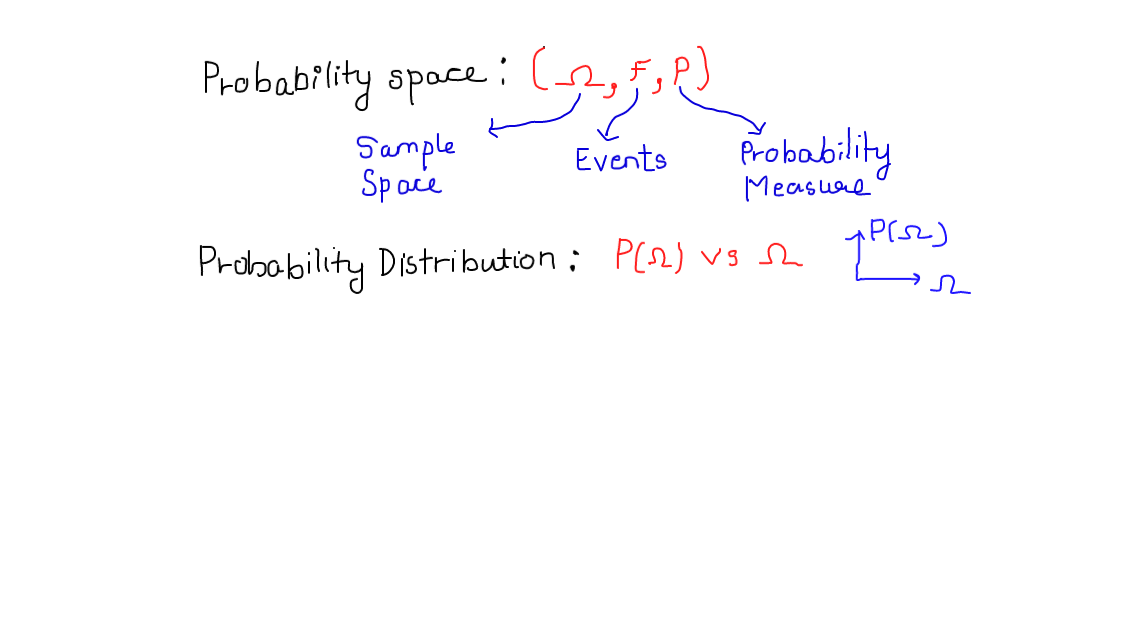 Probability space : (Ω, F, P)
Sample Space
Events
Probability Measure
Probability Distribution : P(Ω) vs Ω
P(Ω)
Ω